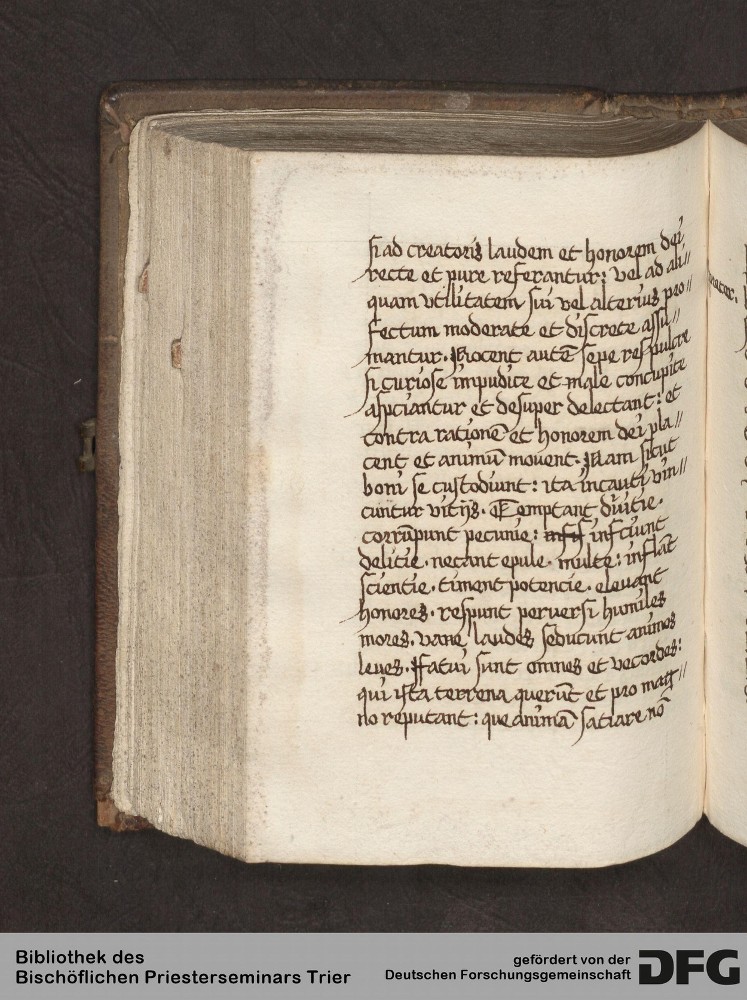 si ad creatoris laudem et honorem dei
recte et pure referantur: vel ad ali//
quam vtilitatem sui vel alterius pro//
fectum moderate et discrete assu//
mantur. Nocent autē sepe res pulcre
si curiose impudice et male concupite
aspiciantur et desuper delectant: et
contra rationē et honorem dei pla//
cent et animū mouent. Nam sicut
boni se custodiunt: ita incauti vin//
cuntur vitijs. Temptant diuitie.
corrūpunt pecunie: inficiunt
delitie. necant epule. multe: inflāt
scientie. timent potencie. eleuant
honores. respunt peruersi humiles
mores. vane laudes seducunt animos
leues. Fatui sunt omnes et vecordes:
qui ista terrena querūt et pro mag//
no reputant: que animā satiare nō
Bibliothek des
Bischöflichen Priesterseminars Trier
gefördert von der
Deutschen Forschungsgemeinschaft
DFG